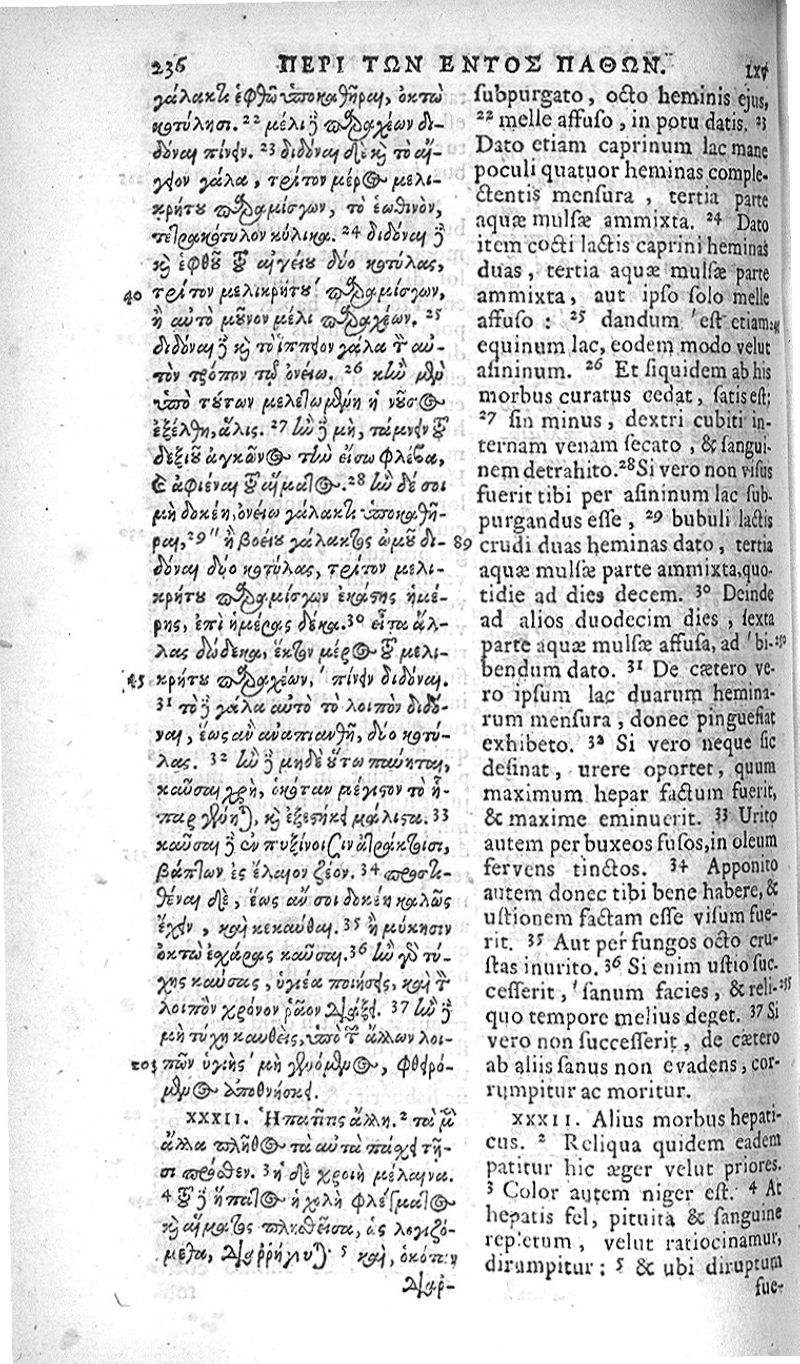 236 ΠΕΡΙ ΤΩΝ ΕΝΤΟΣ ΠΑΘΩΝ. LXV
γάλακτι ἑφθῷ ὑποκαθῆραι, ὀκτὼ
κοτύλησι. 22 μέλι ἢ παραχέων δι-
δόναι πίνειν. 23 διδόναι δὲ καὶ τὸ αἴ-
γειον γάλα, τρίτον μέρος μελι-
κρήτου παραμίσγων, τὸ ἑωθινὸν,
τετρακότυλον κύλικα. 24 διδόναι δὲ
καὶ ἑφθοῦ τοῦ αἰγείου δύο κοτύλας,
40 τρίτον μελικρήτου παραμίσγων,
ἢ αὐτὸ μοῦνον μέλι παραχέων. 25
διδόναι δὲ καὶ τὸ ἵππειον γάλα τὸν αὐ-
τὸν τρόπον τῷ ὀνείῳ. 26 κἢν μὲν
ὑπὸ τούτων μελετωμένη ἡ νοῦσος
ἐξέλθη, ἅλις. 27 ἢν δὲ μὴ, τάμνειν τοῦ
δεξιοῦ ἀγκῶνος τὴν εἴσω φλέβα,
καὶ ἀφιέναι τοῦ αἵματος. 28 ἢν δέ σοι
μὴ δοκέῃ, ὀνείῳ γάλακτι ὑποκαθῆ-
ραι, 29 " ἢ βοείου γάλακτος ὠμοῦ δι- 89
δόναι δύο κοτύλας, τρίτον μελι-
κρήτου παραμίσγων ἑκάστης ἡμέ-
ρης, ἐπὶ ἡμέρας δέκα. 30 εἶτα ἄλ-
λας δώδεκα, ἕκτον μέρος τοῦ μελι-
45 κρήτου παραχέων, ' πίνειν διδόναι.
31 τὸ δὲ γάλα αὐτὸ τὸ λοιπὸν διδό-
ναι, ἕως ἂν ἀναπιανθῇ, δύο κοτύ-
λας. 32 ἢν δὲ μηδὲ οὕτω παύηται,
καῦσαι χρὴ, ὁκόταν μέγιστον τὸ ἧ-
παρ γένηται, καὶ ἐξεστήκῃ μάλιστα. 33
καῦσαι δὲ ἐν πυξίνοισιν ἀτράκτοισι,
βάπτων ἐς ἔλαιον ζέον. 34 προστι-
θέναι δὲ, ἕως ἄν σοι δοκέῃ καλῶς
ἔχειν, καὶ κεκαῦθαι. 35 ἢ μύκησιν
ὀκτὼ ἐσχάρας καῦσαι. 36 ἢν γὰρ τύ-
χῃς καύσας, ὑγιέα ποιήσεις, καὶ τὸν
λοιπὸν χρόνον ῥᾷον διάξει. 37 ἢν δὲ
μὴ τύχῃ καυθεὶς, ὑπὸ τῶν ἄλλων λοι-
πῶν ὑγιὴς ' μὴ γενόμενος, φθειρό-
μενος ἀποθνήσκει.
XXXII. Ἡπατῖτις ἄλλη. 2 τὰ μὲν
ἄλλα πλῆθος τὰ αὐτὰ πάσχει τῆ-
σι πρόσθεν. 3 ἡ δὲ χροιὴ μέλαινα.
4 τοῦ δὲ ἥπατος ἡ χολὴ φλέγματος
καὶ αἵματος πλησθεῖσα, ὡς λογιζό-
μεθα, διαῤῥήγνυται· 5 καὶ, ὁκόταν
διαρ-
subpurgato, octo heminis ejus,
22 melle affuso, in potu datis. 23
Dato etiam caprinum lac mane
poculi quatuor heminas comple-
ctentis mensura, tertia parte
aquæ mulsæ ammixta. 24 Dato
item cocti lactis caprini heminas
duas, tertia aquæ mulsæ parte
ammixta, aut ipso solo melle
affuso: 25 dandum ' est etiam
equinum lac, eodem modo velut
asininum. 26 Et siquidem ab his
morbus curatus cedat, satis est;
27 sin minus, dextri cubiti in-
ternam venam secato, & sangui-
nem detrahito. 28 Si vero non visus
fuerit tibi per asininum lac sub-
purgandus esse, 29 bubuli lactis
crudi duas heminas dato, tertia
aquæ mulsæ parte ammixta, quo-
tidie ad dies decem. 30 Deinde
ad alios duodecim dies, sexta
parte aquæ mulsæ affusa, ad ' bi-
bendum dato. 31 De cætero ve-
ro ipsum lac duarum hemina-
rum mensura, donec pinguefiat
exhibeto. 32 Si vero neque sic
desinat, urere oportet, quum
maximum hepar factum fuerit,
& maxime eminuerit. 33 Urito
autem per buxeos fusos, in oleum
fervens tinctos. 34 Apponito
autem donec tibi bene habere, &
ustionem factam esse visum fue-
rit. 35 Aut per fungos octo cru-
stas inurito. 36 Si enim ustio suc-
cesserit, ' sanum facies, & reli-
quo tempore melius deget. 37 Si
vero non successerit, de cætero
ab aliis sanus non evadens, cor-
rumpitur ac moritur.
XXXII. Alius morbus hepati-
cus. 2 Reliqua quidem eadem
patitur hic æger velut priores.
3 Color autem niger est. 4 At
hepatis fel, pituita & sanguine
repletum, velut ratiocinamur,
dirumpitur: 5 & ubi diruptum
fue-